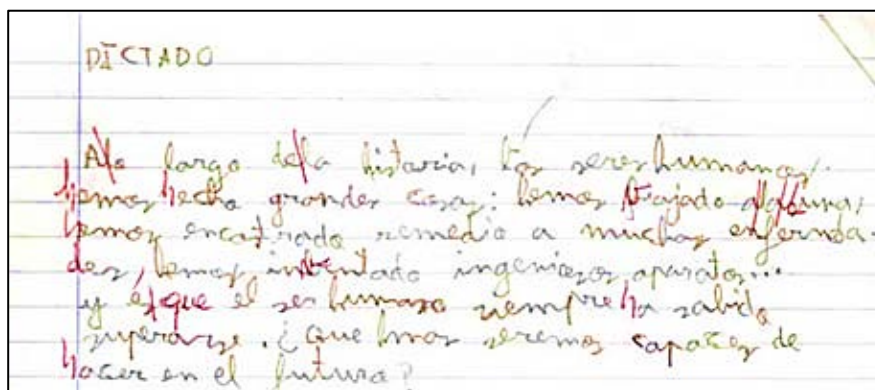 DICTADO
Alo largo dela historia, los seres humanos,
hemos hecho grandes cosas: hemos viajado alaluna,
hemos encotrado remedio a muchas enfermeda-
des, hemos inventado ingeniosos aparatos...
y és que el ser humano siempre ha sabido
superarse. ¿Que hmos seremos capaces de
hacer en el futuro?